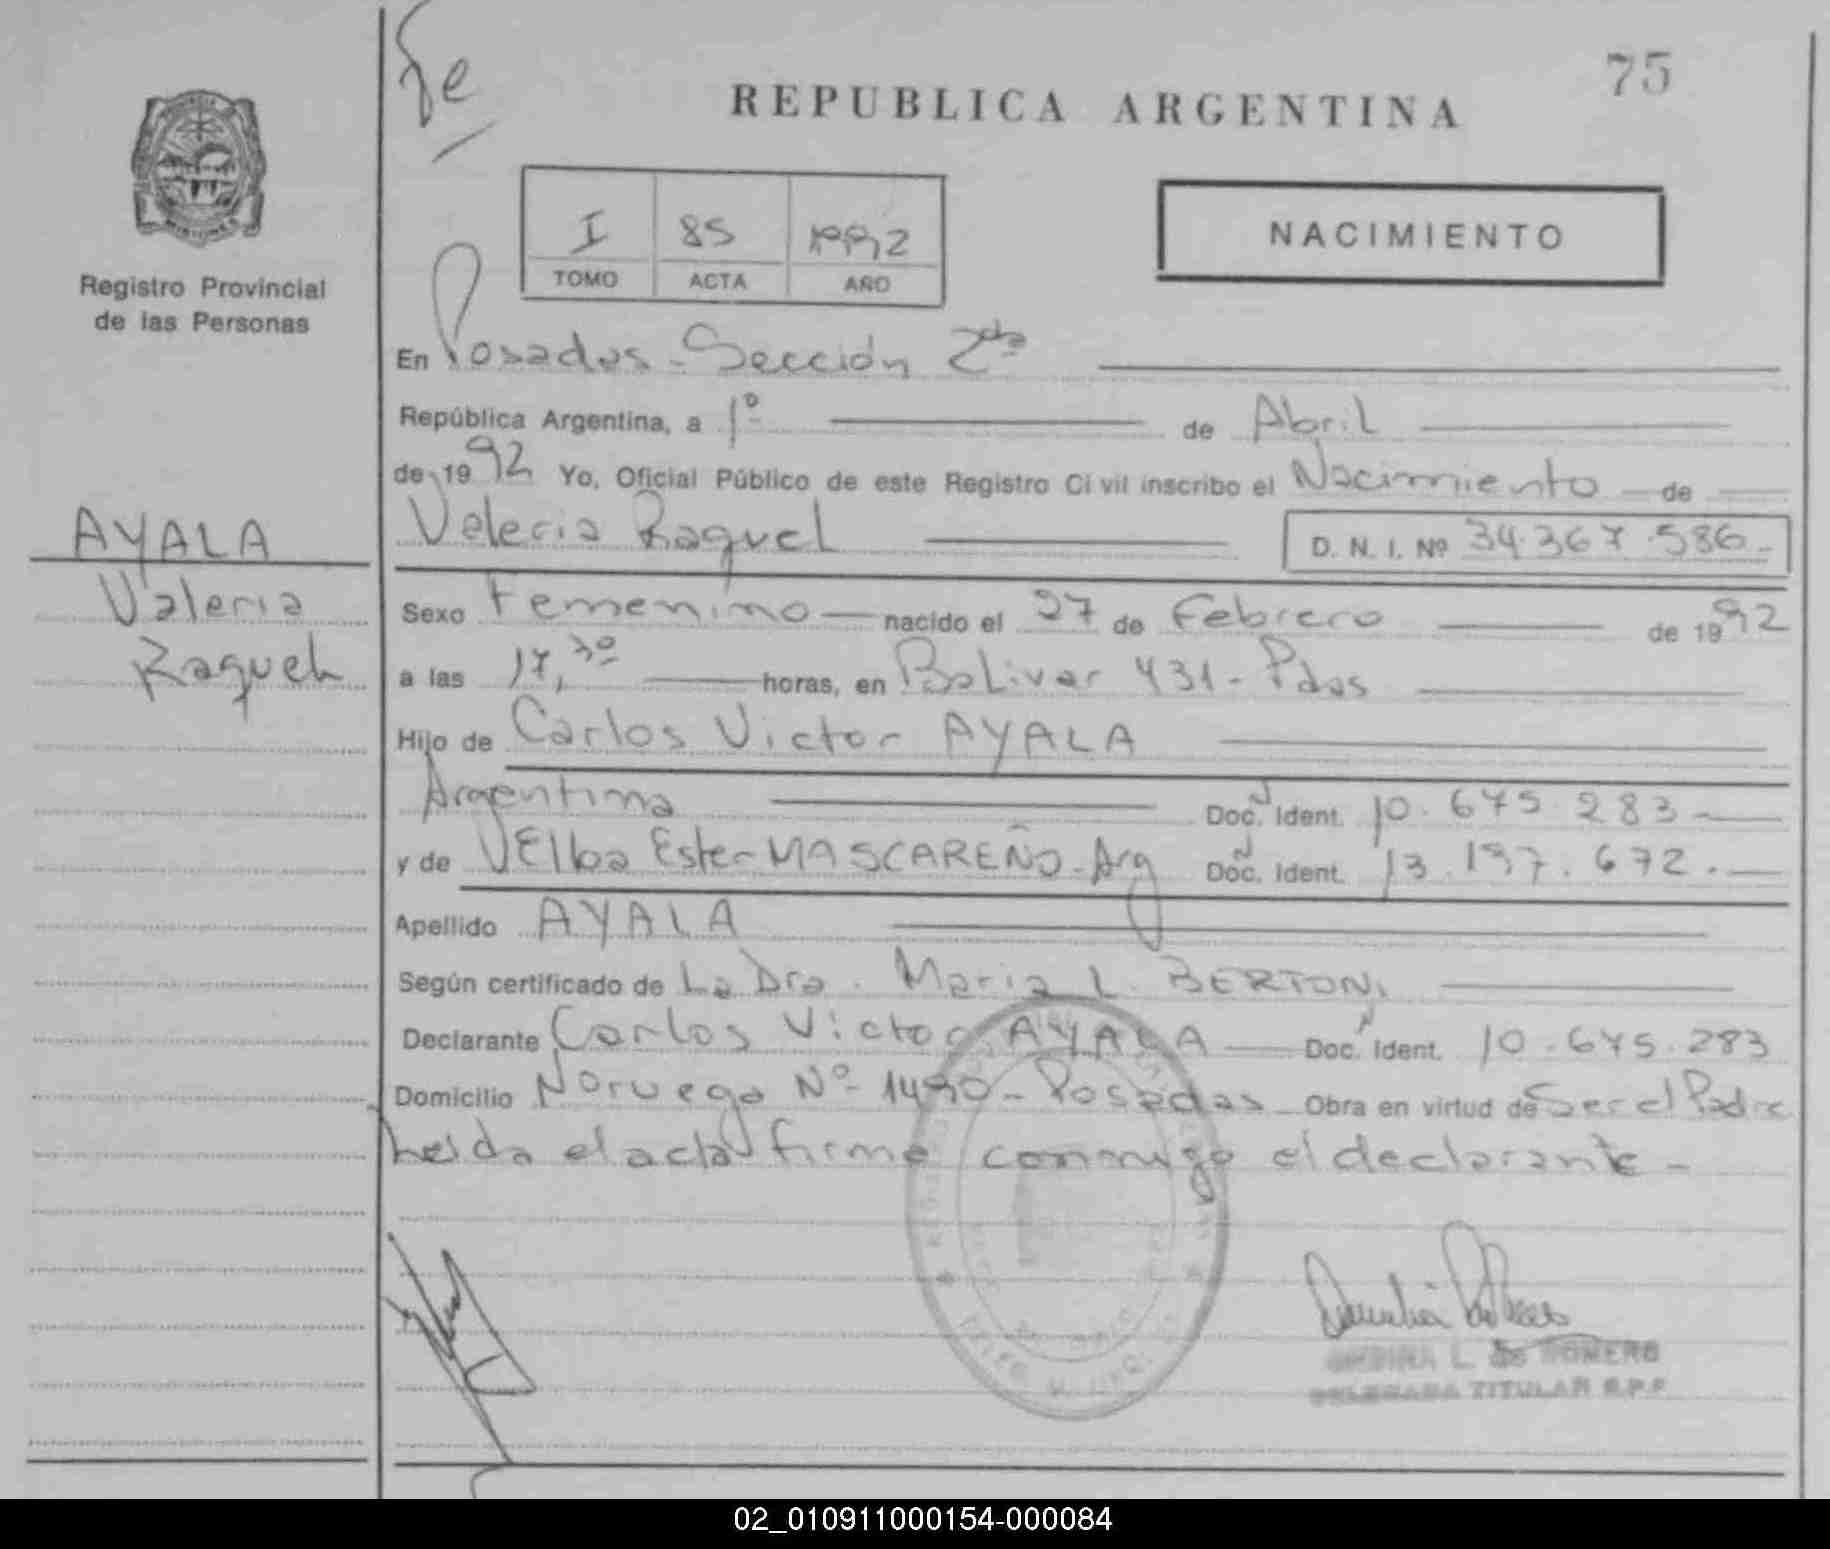 Fe
75
REPUBLICA ARGENTINA
I 85 1992
TOMO ACTA AÑO
NACIMIENTO
Registro Provincial
de las Personas
En Posadas - Sección 2da
República Argentina, a 1º de Abril
de 1992 Yo, Oficial Público de este Registro Civil inscribo el Nacimiento de
Valeria Raquel D. N. I. Nº 34.367.586.-
AYALA
Valeria
Raquel
Sexo Femenino nacido el 27 de Febrero de 1992
a las 17,30 horas, en Bolivar 431 - Pdas
Hijo de Carlos Victor AYALA
Argentina Doc. Ident. 10.675.283
y de VElba Ester MASCAREÑO - Arg Doc. Ident. 13.197.672.
Apellido AYALA
Según certificado de La Dra. Maria L. BERTONI
Declarante Carlos Victor AYALA Doc. Ident. 10.675.283
Domicilio Noruega Nº 1490 - Posadas Obra en virtud de Ser el Padre
heida el acta firma conmigo el declarante -
L. de ROMERO
DELEGADA TITULAR R.P.P
02_010911000154-000084